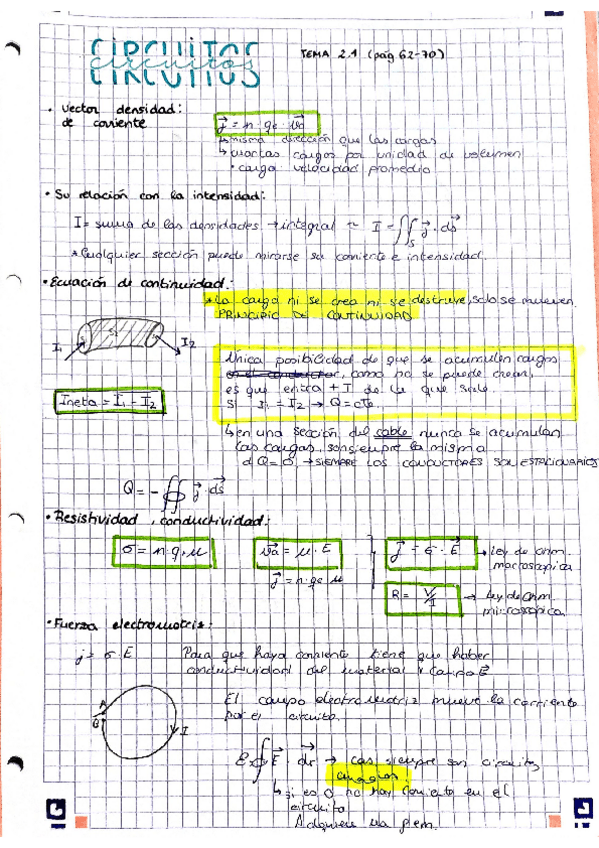 CIRCUITOS
circuitos
CIRCUITOS
TEMA 2.1 (pág 62-70)
• Vector densidad:
de corriente
j⃗ = n · qe · v⃗a
↳ misma dirección que las cargas
↳ cuantas cargas por unidad de volumen
* carga velocidad promedio
• Su relación con la intensidad:
I = suma de las densidades → integral ~ I = ∬s j⃗ · ds⃗
* Cualquier sección puede mirarse su corriente e intensidad.
• Ecuación de continuidad:
* La carga ni se crea ni se destruye, solo se mueven
PRINCIPIO DE CONTINUIDAD
I1 I2
Única posibilidad de que se acumulen cargas
en el conductor, como no se puede crear,
es que entra + I de la que sale
Si I1 - I2 → Q = cte.
Ineta = I1 - I2
↳ en una sección del cable nunca se acumulan
las cargas, son siempre la misma
dQ = 0 → SIEMPRE LOS CONDUCTORES SON ESTACIONARIOS
Q = - ∯ j⃗ · ds⃗
• Resistividad, conductividad:
σ = n · q · μ
v⃗a = μ · E
j⃗ = σ · E⃗ → Ley de Ohm
macroscópica
j⃗ = n · qe · μ
R = V/I → Ley de Ohm
microscópica
• Fuerza electromotriz:
j = σ · E
Para que haya corriente tiene que haber
conductividad del material y campo E⃗
A
B
I
El campo electromotriz mueve la corriente
por el circuito.
ε ∮ E⃗ · dr⃗ → cas siempre son circuitos
cerrados.
↳ si es 0 no hay corriente en el
circuito
Adquiere una